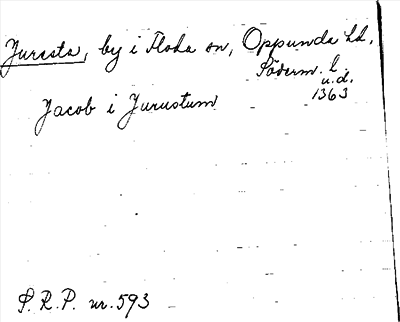 Jursta, by i Floda sn, Oppunda hd,
Söderm. l.
u.d.
1363
Jacob i Jurustum
S. R. P. nr. 593